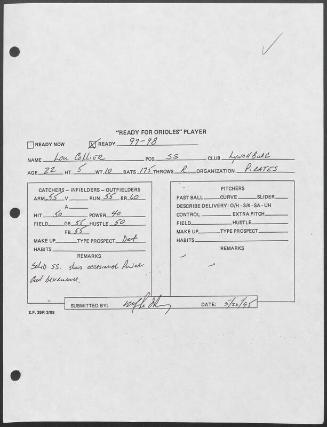 "READY FOR ORIOLES" PLAYER
READY NOW READY 97-98
NAME Lou Collier POS SS CLUB Lynchburg
AGE 22 HT 5 WT 10 BATS 175 THROWS R ORGANIZATION Pirates
CATCHERS - INFIELDERS - OUTFIELDERS
ARM 55 V RUN 55 BR 60
A
HIT 50 POWER 40
FIELD CF 55 HUSTLE 50
FB 55
MAKE UP TYPE PROSPECT Def
HABITS
REMARKS
Solid SS. shows occasional Power
and
PITCHERS
FAST BALL CURVE SLIDER
DESCRIBE DELIVERY: O/H - S/A - SA - UH
CONTROL EXTRA PITCH
FIELD HUSTLE
MAKE UP TYPE PROSPECT
HABITS
REMARKS
SUBMITTED BY: DATE: